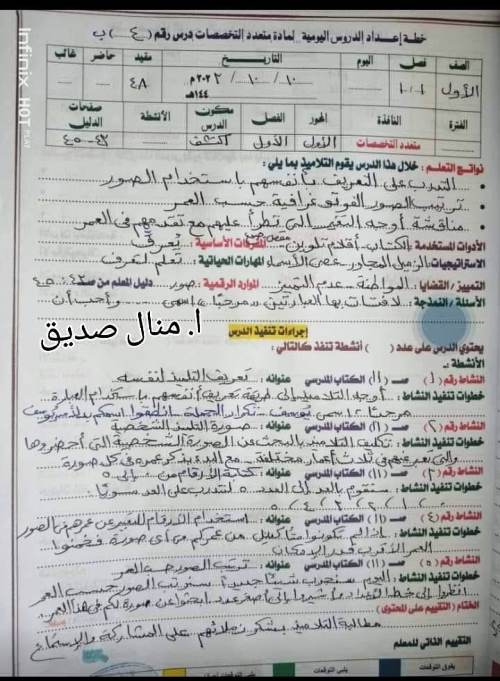 خطة إعداد الدروس اليومية لمادة متعدد التخصصات درس رقم (٤) ب
الصف فصل اليوم التاريخ مقيد حاضر غائب
الأول ١/١ ١٠ / ١٠ / ٢٠٢٢م ٤٨
١٤٤هـ
الفترة النافذة المحور الفصل مكون الدرس الأنشطة صفحات الدليل
متعدد التخصصات الأول الأول اكتشف ٤٣-٤٥
نواتج التعلم : خلال هذا الدرس يقوم التلاميذ بما يلي :
التدرب على التعريف بأنفسهم باستخدام الصور
ترتيب الصور الفوتوغرافية حسب العمر
مناقشة أوجه التغير التى تطرأ عليهم مع تقدمهم فى العمر
الأدوات المستخدمة : الكتاب أقلام تلوين المفردات الأساسية : تعرف
الاستراتيجيات : الزميل المجاور عصى الأسماء المهارات الحياتية : تعلم لتعرف
التمييز / القضايا : المواطنة عدم التمييز الموارد الرقمية : صور دليل المعلم من صـ ٤٣ : ٤٥
الأسئلة / النمذجة : لافتات بها العبارتين "مرحبًا، اسمى" وأحب أن
ا. منال صديق
إجراءات تنفيذ الدرس
يحتوي الدرس على عدد ( ) أنشطة تنفذ كالتالي :
الأنشطة :
النشاط رقم (١) صـ (١١) الكتاب المدرسي عنوانه : تعريف التلميذ لنفسه
خطوات تنفيذ النشاط : أوجه التلاميذ إلى طريقة تعريف أنفسهم باستخدام العبارة
مرحبًا، اسمى يوسف - تكرار الجملة - انطقوا اسمكم بدلًا من يوسف
النشاط رقم (٢) صـ (١١) الكتاب المدرسي عنوانه : صورة التلميذ الشخصية
خطوات تنفيذ النشاط : تكليف التلاميذ بالبحث عن الصورة الشخصية التى أحضروها
والتى تعبر عنهم فى ثلاث أعمار مختلفة - مع البدء بذكر عمره فى كل صورة
النشاط رقم (٣) صـ (١١) الكتاب المدرسي عنوانه : كتابة الأرقام من ٠ إلى ٥
خطوات تنفيذ النشاط : سنقوم بالعد إلى العدد ٥ لنتدرب على العد سويًا :
٠ / ١ / ٢ / ٣ / ٤ / ٥
النشاط رقم (٤) صـ (١١) الكتاب المدرسي عنوانه : استخدام الأرقام للتعبير عن عمرهم فى الصور
خطوات تنفيذ النشاط : إذا لم تكونوا متأكدين من عمركم فى أى صورة فخمنوا
العمر الأقرب قدر الإمكان
النشاط رقم (٥) صـ (١١) الكتاب المدرسي عنوانه : ترتيب الصور حسب العمر
خطوات تنفيذ النشاط : اليوم سنجرب شيئًا جديدًا سنرتب الصور حسب العمر
انظروا إلى خط الأعداد وأشيروا إلى أصغر عدد ابحثوا عن صورة لكم فى هذا العمر
الختام (التقييم على المحتوى) :
مطالبة التلاميذ بشكر زملائهم على المشاركة والاستماع
التقييم الذاتي للمعلم
يفوق التوقعات
يلبي التوقعات
Infinix HOT PLAY